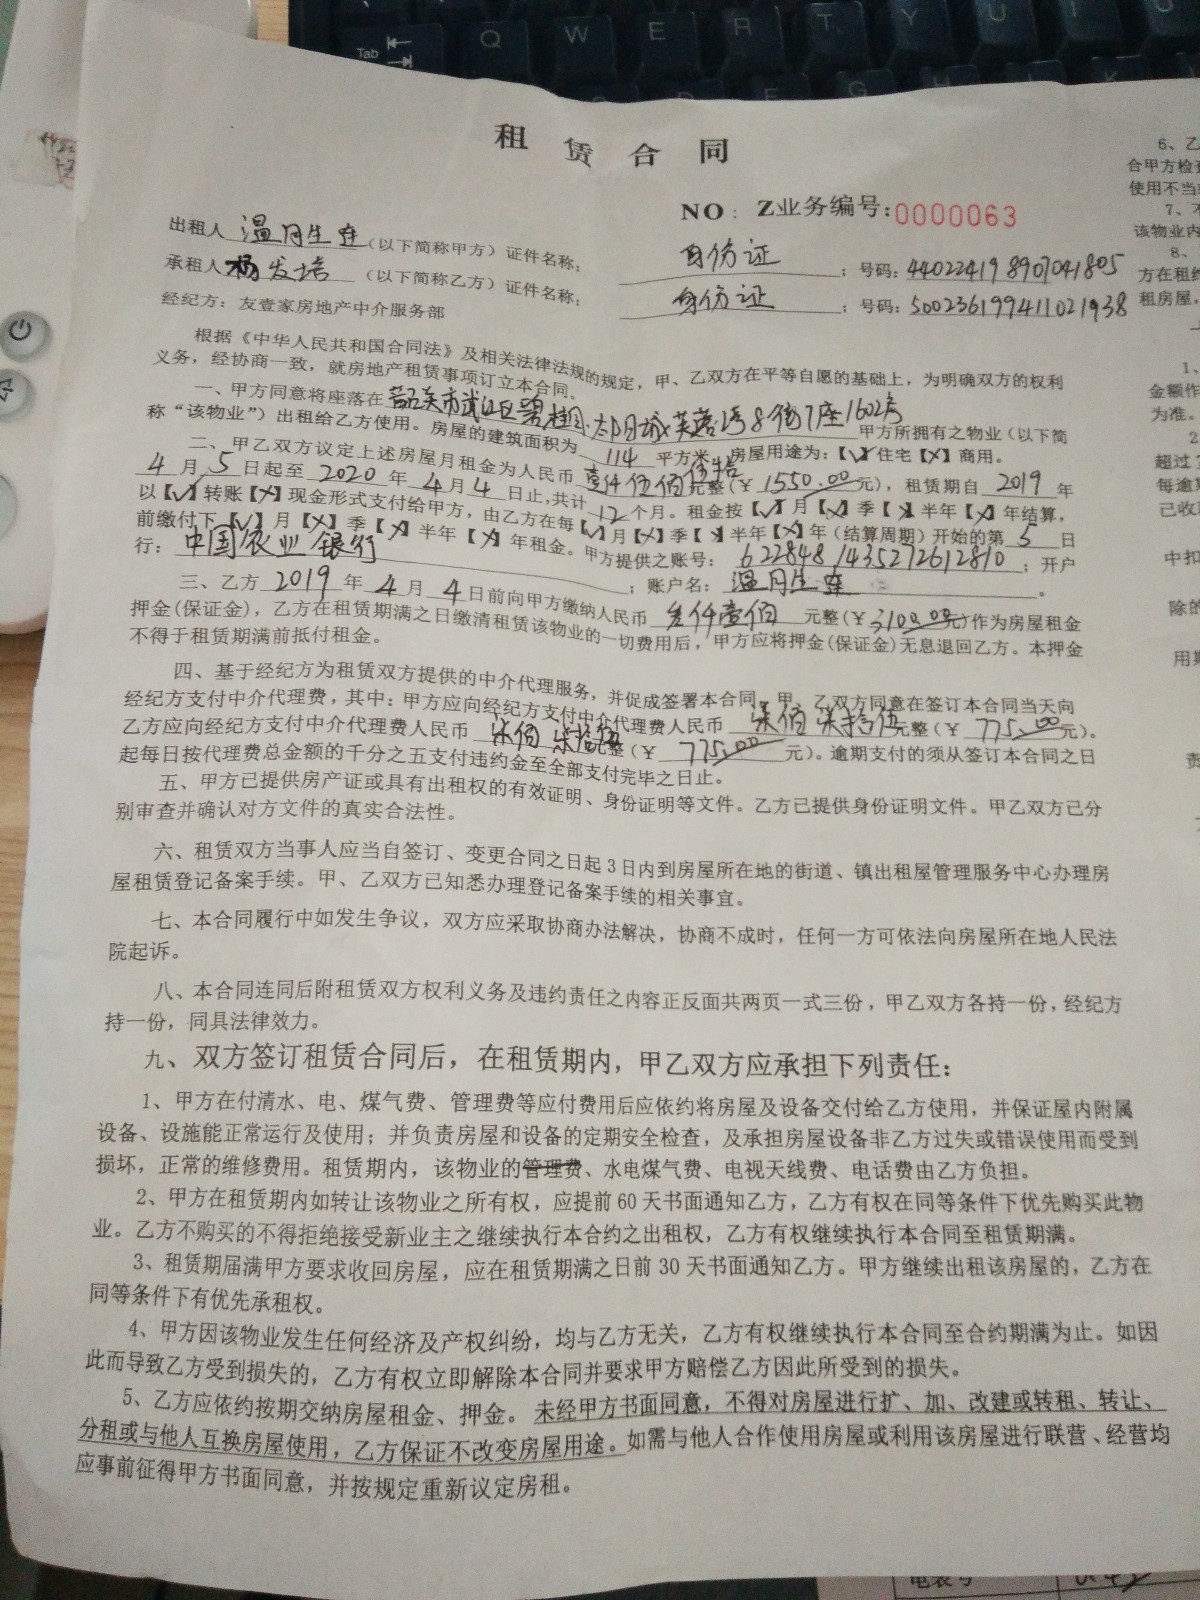 租赁合同
NO：Z业务编号:0000063
出租人 温月生连（以下简称甲方）证件名称： 身份证 ；号码：440224198907041805
承租人 杨发培 （以下简称乙方）证件名称： 身份证 ；号码：500236199411021938
经纪方：友壹家房地产中介服务部
根据《中华人民共和国合同法》及相关法律法规的规定，甲、乙双方在平等自愿的基础上，为明确双方的权利
义务，经协商一致，就房地产租赁事项订立本合同。
一、甲方同意将座落在 韶关市武江区碧桂园·太阳城芙蓉湾8街7座1602号 甲方所拥有之物业（以下简
称“该物业”）出租给乙方使用。房屋的建筑面积为 114 平方米，房屋用途为：【√】住宅【X】商用。
二、甲乙双方议定上述房屋月租金为人民币 壹仟伍佰伍拾 元整（￥1550.00元），租赁期自 2019 年
4 月 5 日起至 2020 年 4 月 4 日止，共计 12 个月。租金按【√】月【X】季【X】半年【X】年结算，
以【√】转账【X】现金形式支付给甲方，由乙方在每【√】月【X】季【X】半年【X】年（结算周期）开始的第 5 日
前缴付下【√】月【X】季【X】半年【X】年租金。甲方提供之账号： 6228481435272612810 ；开户
行： 中国农业银行 ；账户名： 温月生连 。
三、乙方 2019 年 4 月 4 日前向甲方缴纳人民币 叁仟壹佰 元整（￥3100.00元）作为房屋租金
押金(保证金)，乙方在租赁期满之日缴清租赁该物业的一切费用后，甲方应将押金(保证金)无息退回乙方。本押金
不得于租赁期满前抵付租金。
四、基于经纪方为租赁双方提供的中介代理服务，并促成签署本合同，甲、乙双方同意在签订本合同当天向
经纪方支付中介代理费，其中：甲方应向经纪方支付中介代理费人民币 柒佰柒拾伍 元整（￥ 775.00 元）。
乙方应向经纪方支付中介代理费人民币 柒佰柒拾伍 元整（￥ 775.00 元）。逾期支付的须从签订本合同之日
起每日按代理费总金额的千分之五支付违约金至全部支付完毕之日止。
五、甲方已提供房产证或具有出租权的有效证明、身份证明等文件。乙方已提供身份证明文件。甲乙双方已分
别审查并确认对方文件的真实合法性。
六、租赁双方当事人应当自签订、变更合同之日起3日内到房屋所在地的街道、镇出租屋管理服务中心办理房
屋租赁登记备案手续。甲、乙双方已知悉办理登记备案手续的相关事宜。
七、本合同履行中如发生争议，双方应采取协商办法解决，协商不成时，任何一方可依法向房屋所在地人民法
院起诉。
八、本合同连同后附租赁双方权利义务及违约责任之内容正反面共两页一式三份，甲乙双方各持一份，经纪方
持一份，同具法律效力。
九、双方签订租赁合同后，在租赁期内，甲乙双方应承担下列责任：
1、甲方在付清水、电、煤气费、管理费等应付费用后应依约将房屋及设备交付给乙方使用，并保证屋内附属
设备、设施能正常运行及使用；并负责房屋和设备的定期安全检查，及承担房屋设备非乙方过失或错误使用而受到
损坏，正常的维修费用。租赁期内，该物业的管理费、水电煤气费、电视天线费、电话费由乙方负担。
2、甲方在租赁期内如转让该物业之所有权，应提前60天书面通知乙方，乙方有权在同等条件下优先购买此物
业。乙方不购买的不得拒绝接受新业主之继续执行本合约之出租权，乙方有权继续执行本合同至租赁期满。
3、租赁期届满甲方要求收回房屋，应在租赁期满之日前30天书面通知乙方。甲方继续出租该房屋的，乙方在
同等条件下有优先承租权。
4、甲方因该物业发生任何经济及产权纠纷，均与乙方无关，乙方有权继续执行本合同至合约期满为止。如因
此而导致乙方受到损失的，乙方有权立即解除本合同并要求甲方赔偿乙方因此所受到的损失。
5、乙方应依约按期交纳房屋租金、押金。未经甲方书面同意，不得对房屋进行扩、加、改建或转租、转让、
分租或与他人互换房屋使用，乙方保证不改变房屋用途。如需与他人合作使用房屋或利用该房屋进行联营、经营均
应事前征得甲方书面同意，并按规定重新议定房租。
6、乙
合甲方检查
使用不当
7、不
该物业内
8、
方在租
租房屋，
1、
金额作
为准。
2
超过
每逾期
已收
中扣
除的
用期
责
Tab
Q W E R T Y U I